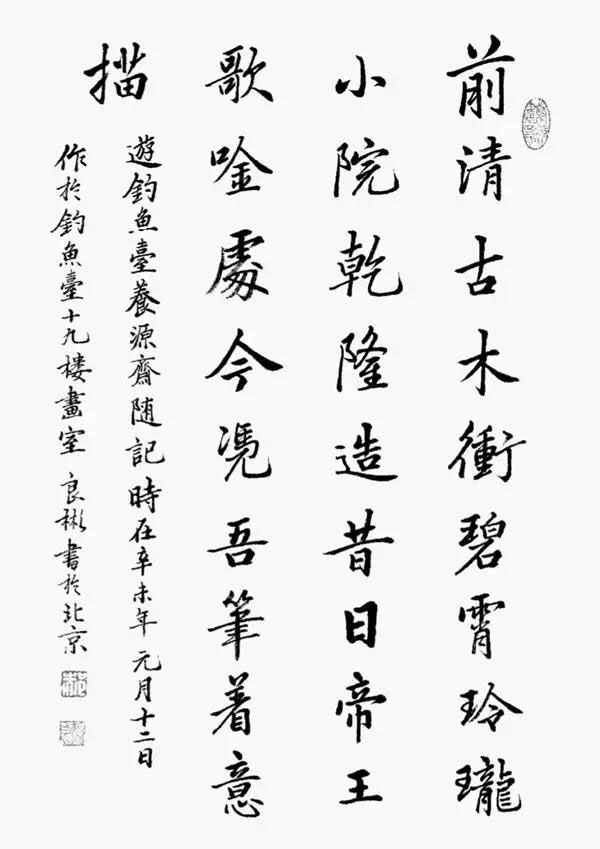 前清古木衝碧霄玲瓏
小院乾隆造昔日帝王
歌唫處今憑吾筆着意
描
遊釣魚臺養源齋随記時在辛未年元月十二日
作於釣魚臺十九楼畫室良彬書於北京